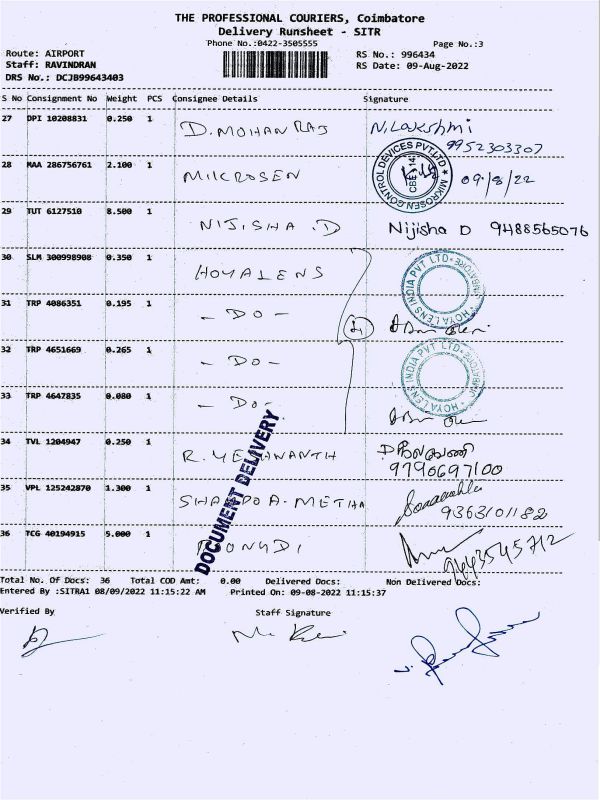 THE PROFESSIONAL COURIERS, Coimbatore
Delivery Runsheet - SITR
Phone No.:0422-3505555 Page No.:3
Route: AIRPORT RS No.: 996434
Staff: RAVINDRAN RS Date: 09-Aug-2022
DRS No.: DCJB99643403
S No Consignment No Weight PCS Consignee Details Signature
27 DPI 10208831 0.250 1 D. MOHAN RAJ N. Lakshmi
9952303307
28 MAA 286756761 2.100 1 MIKROSEN MIKROSEN CONTROL DEVICES PVT LTD CBE 14 09/8/22
29 TUT 6127510 8.500 1 NIJISHA .D Nijisha D 9488565076
30 SLM 300998908 0.350 1 HOYA LENS HOYA LENS INDIA PVT LTD
31 TRP 4086351 0.195 1 - DO -
32 TRP 4651669 0.265 1 - DO - HOYA LENS INDIA PVT LTD
33 TRP 4647835 0.080 1 - DO -
DOCUMENT DELIVERY
34 TVL 1204947 0.250 1
9790697100
35 VPL 125242870 1.300 1 METHA
9363101182
36 TCG 40194915 5.000 1 9443545712
Total No. Of Docs: 36 Total COD Amt: 0.00 Delivered Docs: Non Delivered Docs:
Entered By :SITRA1 08/09/2022 11:15:22 AM Printed On: 09-08-2022 11:15:37
Verified By Staff Signature